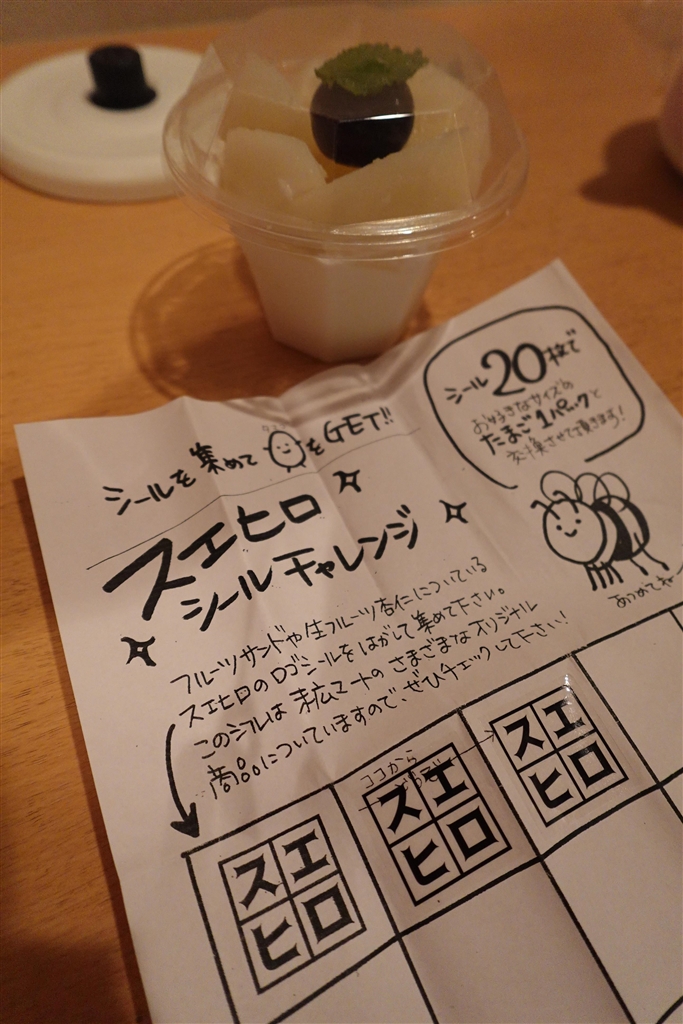 シールを集めて
をGET!!
スエヒロ
シールチャレンジ
シール20枚で
お好きなサイズの
たまご1パックと
交換させて頂きます!
あつめてね〜
フルーツサンドや生フルーツ杏仁についている
スエヒロのロゴシールをはがして集めて下さい。
このシールは末広マートのさまざまなオリジナル
商品についていますので、ぜひチェックして下さい!
ココから
スエ
ヒロ
スエ
ヒロ
スエ
ヒロ